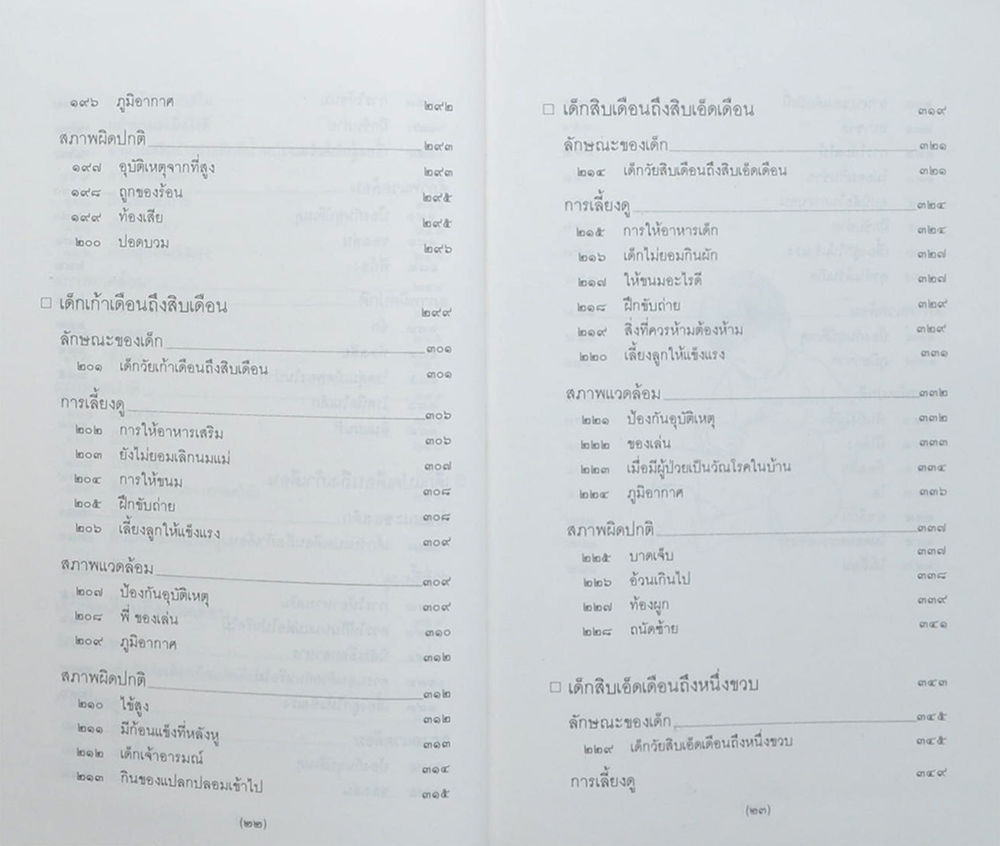 ๑๙๖ ภูมิอากาศ ๒๙๒
สภาพผิดปกติ ๒๙๓
๑๙๗ อุบัติเหตุจากที่สูง ๒๙๓
๑๙๘ ถูกของร้อน ๒๙๕
๑๙๙ ท้องเสีย ๒๙๕
๒๐๐ ปอดบวม ๒๙๖
□ เด็กเก้าเดือนถึงสิบเดือน ๒๙๙
ลักษณะของเด็ก ๓๐๑
๒๐๑ เด็กวัยเก้าเดือนถึงสิบเดือน ๓๐๑
การเลี้ยงดู ๓๐๖
๒๐๒ การให้อาหารเสริม ๓๐๖
๒๐๓ ยังไม่ยอมเลิกนมแม่ ๓๐๗
๒๐๔ การให้ขนม ๓๐๘
๒๐๕ ฝึกขับถ่าย ๓๐๘
๒๐๖ เลี้ยงลูกให้แข็งแรง ๓๐๙
สภาพแวดล้อม ๓๐๙
๒๐๗ ป้องกันอุบัติเหตุ ๓๐๙
๒๐๘ พี่ ของเล่น ๓๑๐
๒๐๙ ภูมิอากาศ ๓๑๒
สภาพผิดปกติ ๓๑๒
๒๑๐ ไข้สูง ๓๑๒
๒๑๑ มีก้อนแข็งที่หลังหู ๓๑๓
๒๑๒ เด็กเจ้าอารมณ์ ๓๑๔
๒๑๓ กินของแปลกปลอมเข้าไป ๓๑๕
(๒๒)
□ เด็กสิบเดือนถึงสิบเอ็ดเดือน ๓๑๙
ลักษณะของเด็ก ๓๒๑
๒๑๔ เด็กวัยสิบเดือนถึงสิบเอ็ดเดือน ๓๒๑
การเลี้ยงดู ๓๒๔
๒๑๕ การให้อาหารเด็ก ๓๒๔
๒๑๖ เด็กไม่ยอมกินผัก ๓๒๗
๒๑๗ ให้ขนมอะไรดี ๓๒๗
๒๑๘ ฝึกขับถ่าย ๓๒๙
๒๑๙ สิ่งที่ควรห้ามต้องห้าม ๓๒๙
๒๒๐ เลี้ยงลูกให้แข็งแรง ๓๓๑
สภาพแวดล้อม ๓๓๒
๒๒๑ ป้องกันอุบัติเหตุ ๓๓๒
๒๒๒ ของเล่น ๓๓๓
๒๒๓ เมื่อมีผู้ป่วยเป็นวัณโรคในบ้าน ๓๓๔
๒๒๔ ภูมิอากาศ ๓๓๖
สภาพผิดปกติ ๓๓๗
๒๒๕ บาดเจ็บ ๓๓๗
๒๒๖ อ้วนเกินไป ๓๓๘
๒๒๗ ท้องผูก ๓๓๙
๒๒๘ ถนัดซ้าย ๓๔๑
□ เด็กสิบเอ็ดเดือนถึงหนึ่งขวบ ๓๔๓
ลักษณะของเด็ก ๓๔๕
๒๒๙ เด็กวัยสิบเอ็ดเดือนถึงหนึ่งขวบ ๓๔๕
การเลี้ยงดู ๓๔๙
(๒๓)